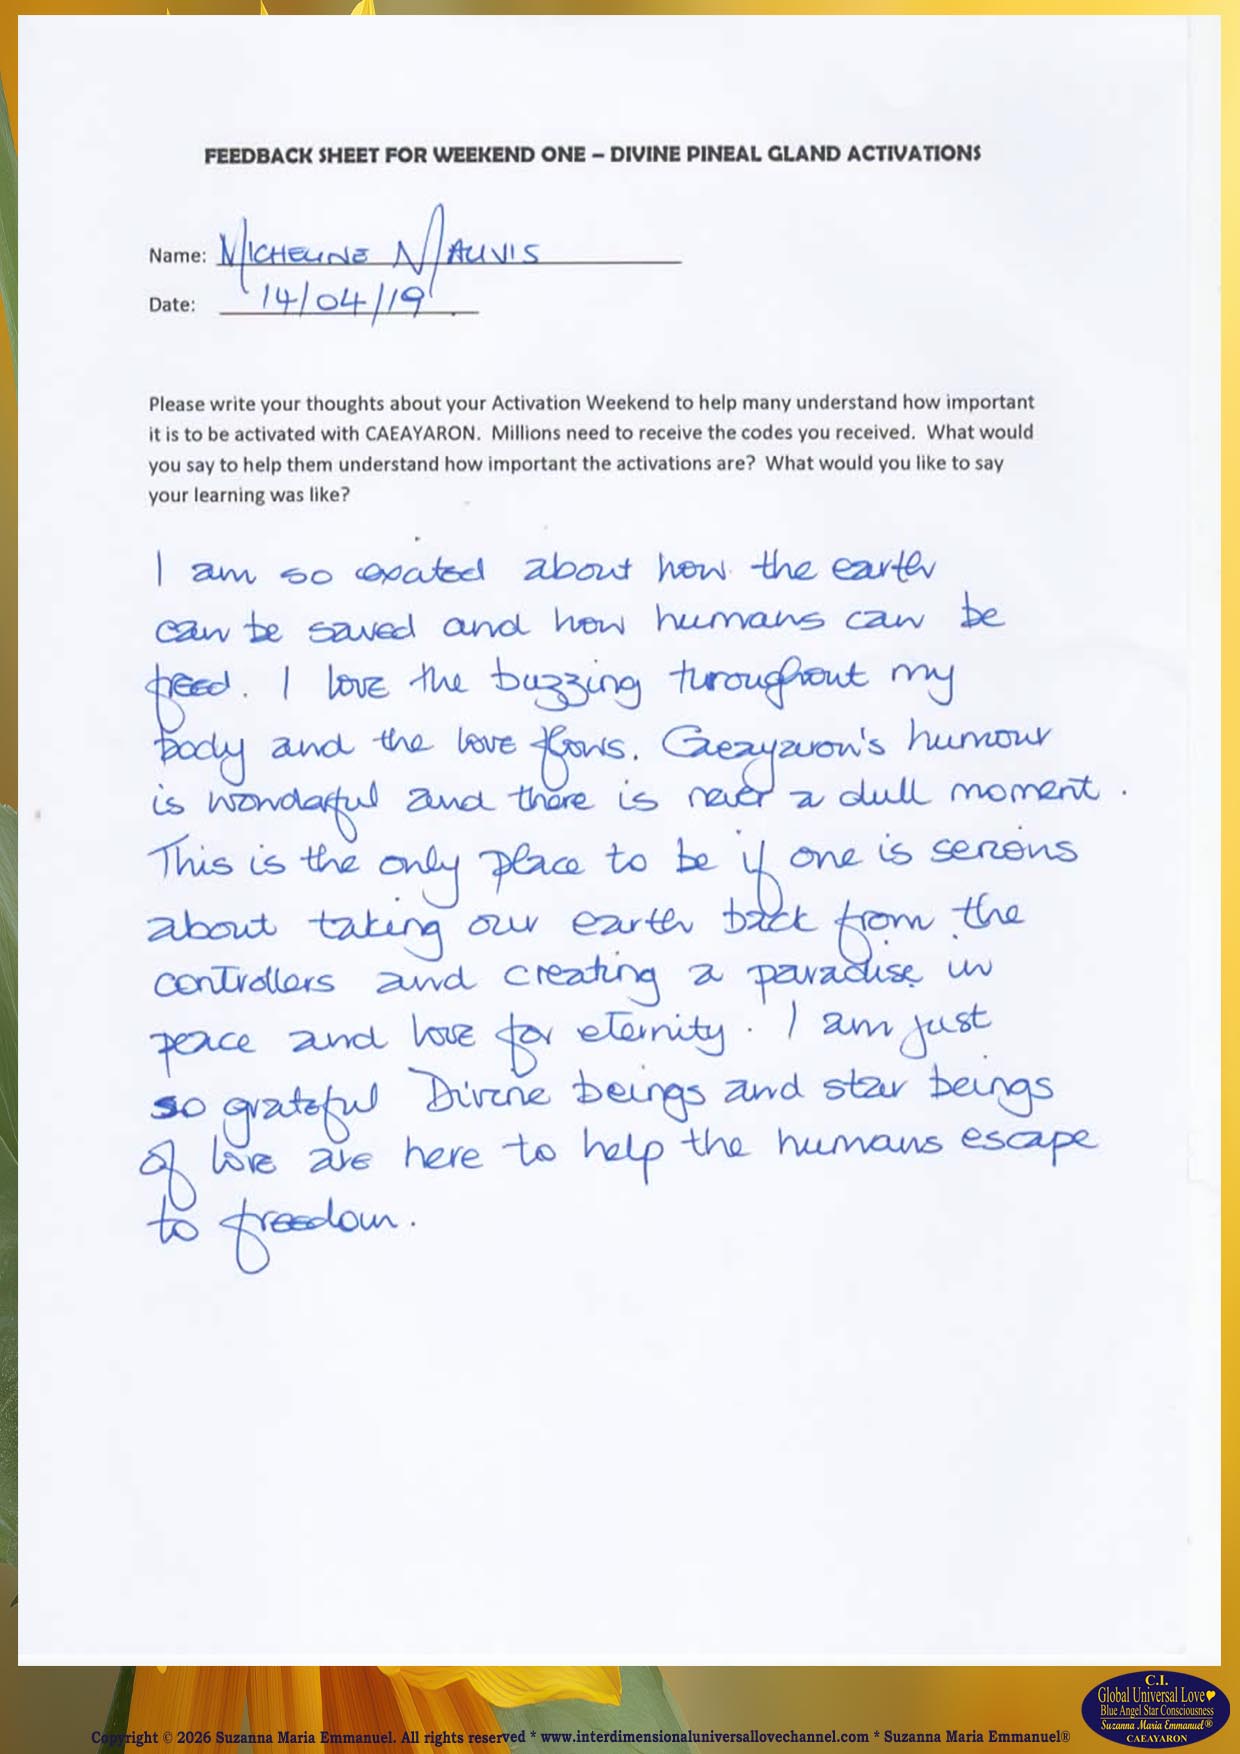 FEEDBACK SHEET FOR WEEKEND ONE – DIVINE PINEAL GLAND ACTIVATIONS
Name: MICHELINE MAUVIS
Date: 14/04/19
Please write your thoughts about your Activation Weekend to help many understand how important
it is to be activated with CAEAYARON. Millions need to receive the codes you received. What would
you say to help them understand how important the activations are? What would you like to say
your learning was like?
I am so excited about how the earth
can be saved and how humans can be
freed. I love the buzzing throughout my
body and the love flows. Caeayaron's humour
is wonderful and there is never a dull moment.
This is the only place to be if one is serious
about taking our earth back from the
controllers and creating a paradise in
peace and love for eternity. I am just
so grateful Divine beings and star beings
of love are here to help the humans escape
to freedom.
C.I.
Global Universal Love
Blue Angel Star Consciousness
Suzanna Maria Emmanuel®
CAEAYARON
Copyright © 2026 Suzanna Maria Emmanuel. All rights reserved * www.interdimensionaluniversallovechannel.com * Suzanna Maria Emmanuel®